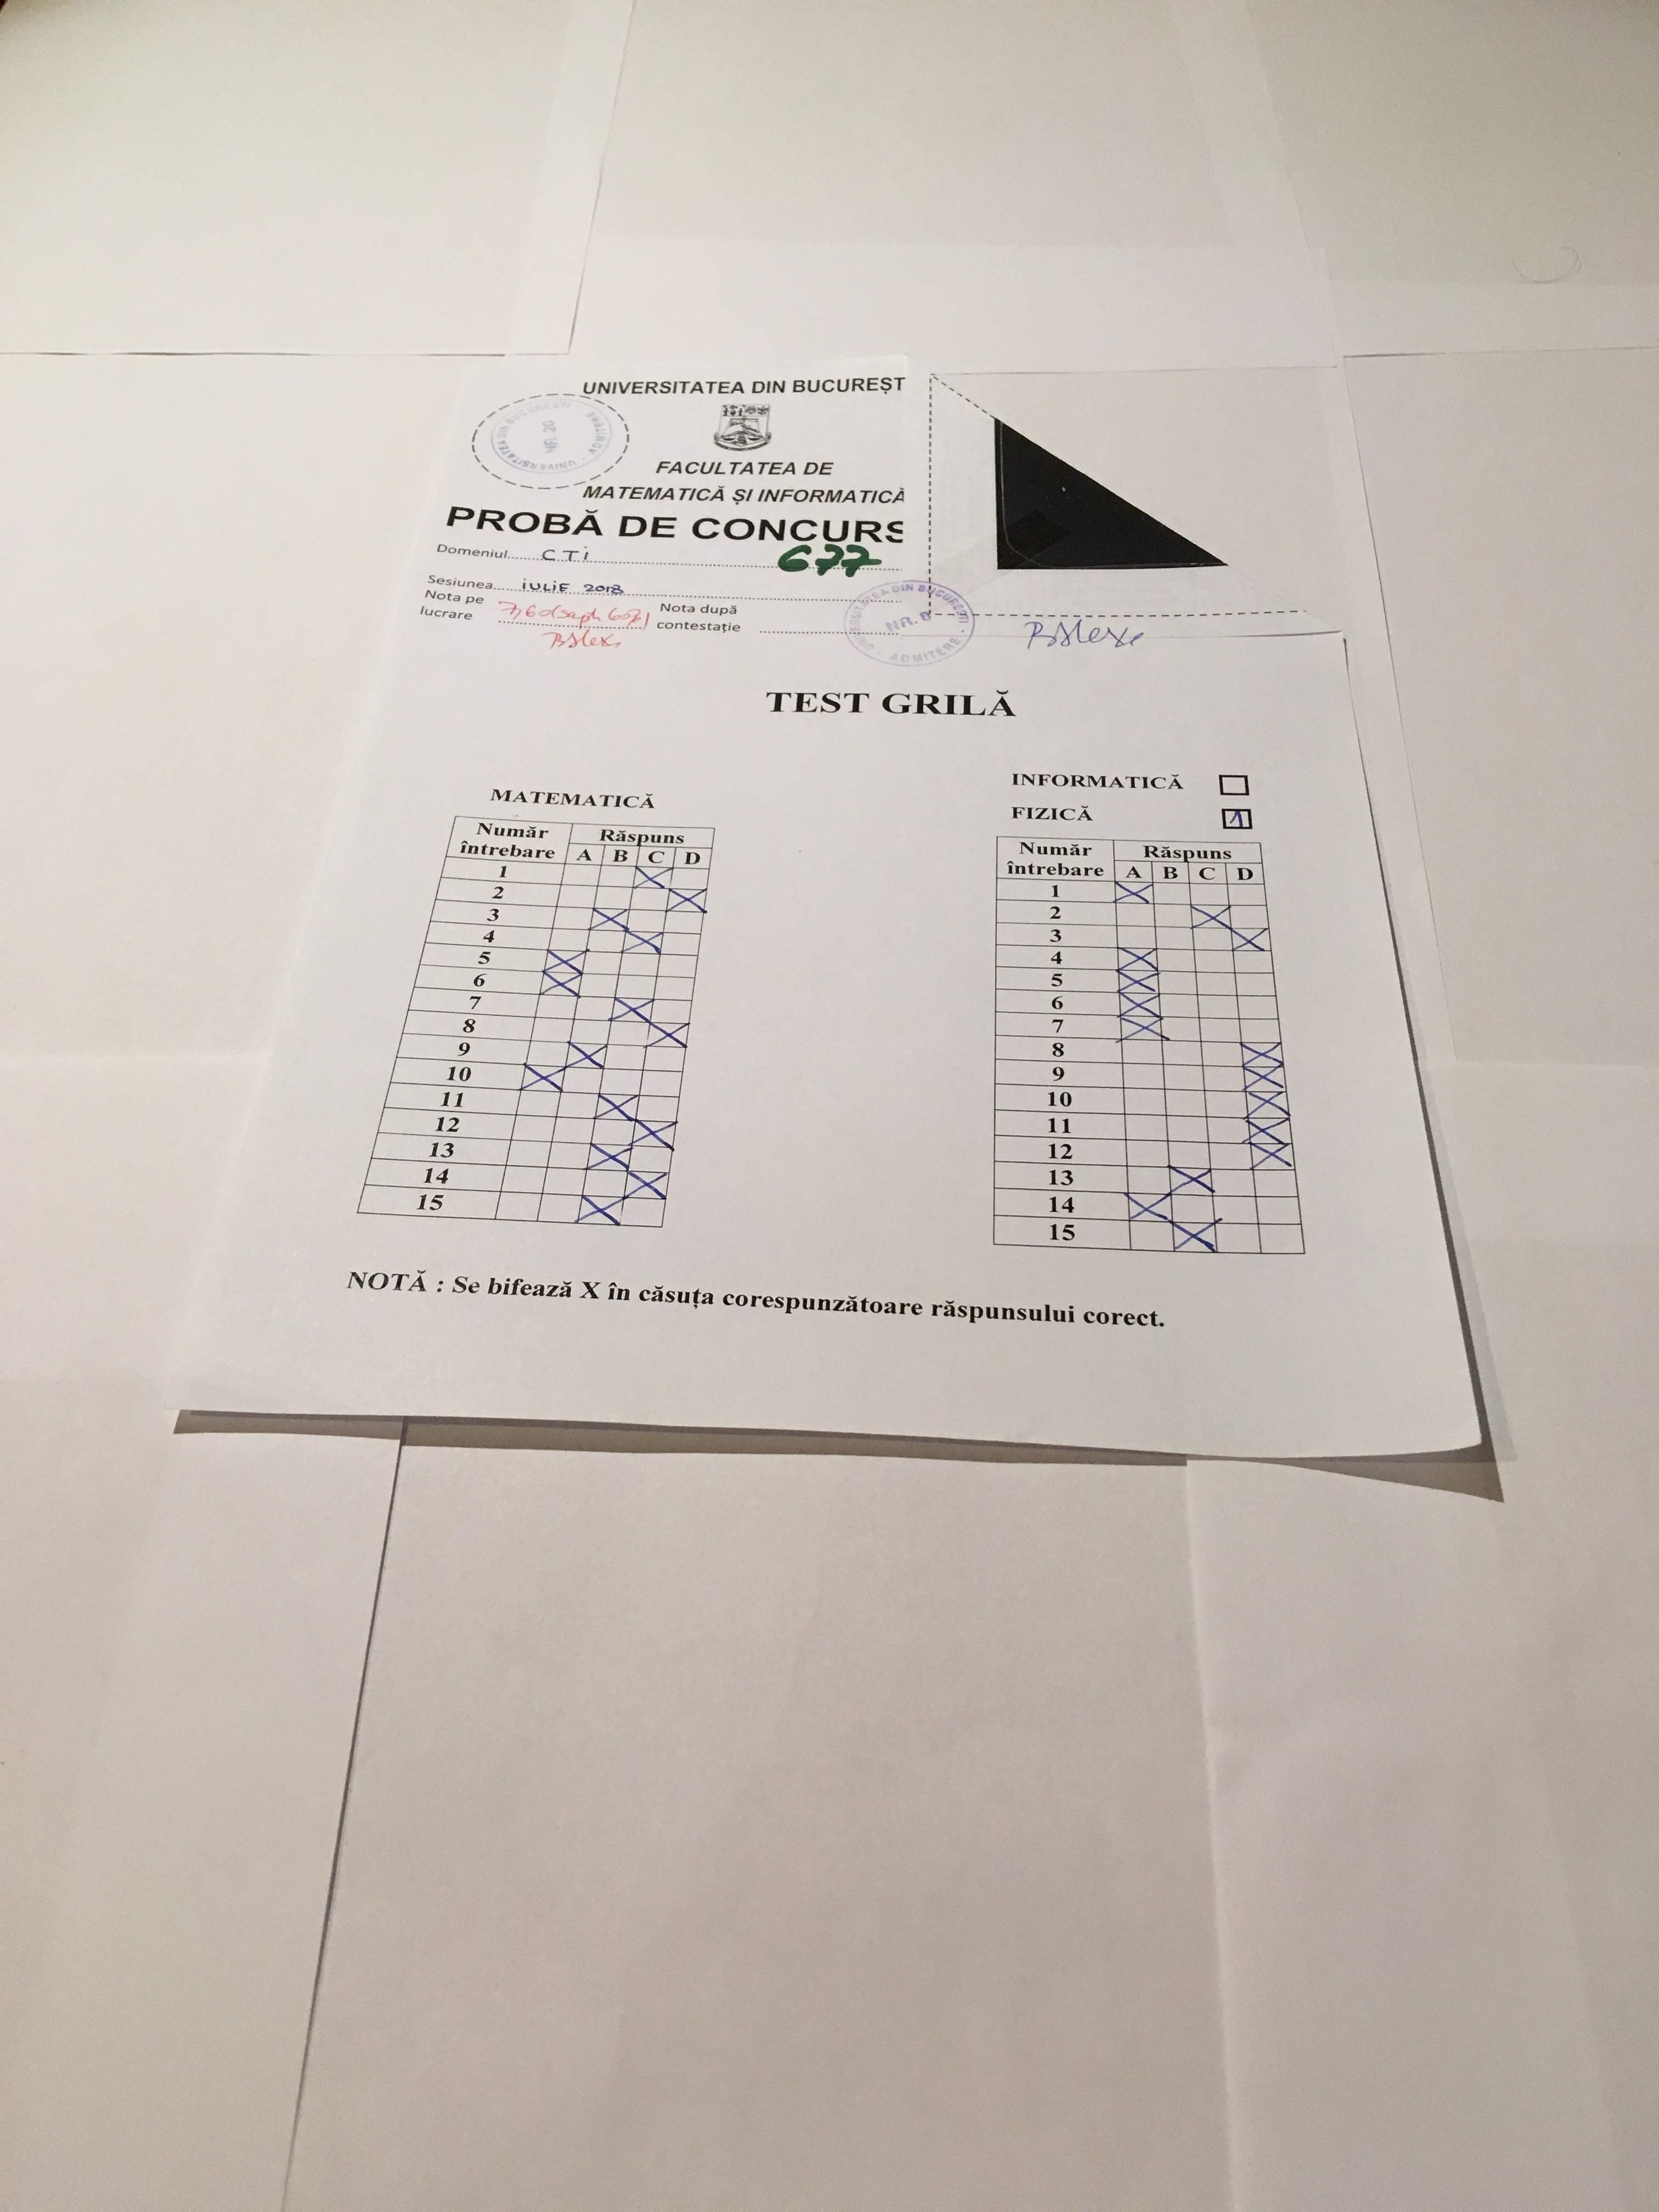 UNIVERSITATEA DIN BUCUREȘT
UNIVERSITATEA DIN BUCUREȘTI - ADMITERE
NR. 20
FACULTATEA DE
MATEMATICĂ ȘI INFORMATICĂ
PROBĂ DE CONCURS
677
Domeniul CTI
Sesiunea iULiE 2018
Nota pe lucrare 7,60 (șapte 60%)
Nota după contestație
UNIVERSITATEA DIN BUCUREȘTI - ADMITERE
NR. 8
TEST GRILĂ
MATEMATICĂ
Număr întrebare Răspuns
A B C D
1 X
2 X
3 X
4 X
5 X
6 X
7 X
8 X
9 X
10 X
11 X
12 X
13 X
14 X
15 X
INFORMATICĂ
FIZICĂ 1
Număr întrebare Răspuns
A B C D
1 X
2 X
3 X
4 X
5 X
6 X
7 X
8 X
9 X
10 X
11 X
12 X
13 X
14 X
15 X
NOTĂ : Se bifează X în căsuța corespunzătoare răspunsului corect.